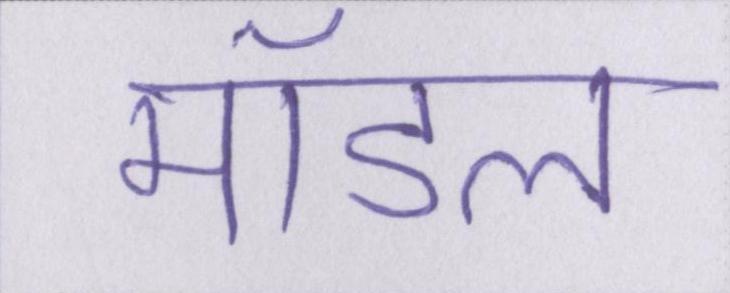 मॉडल